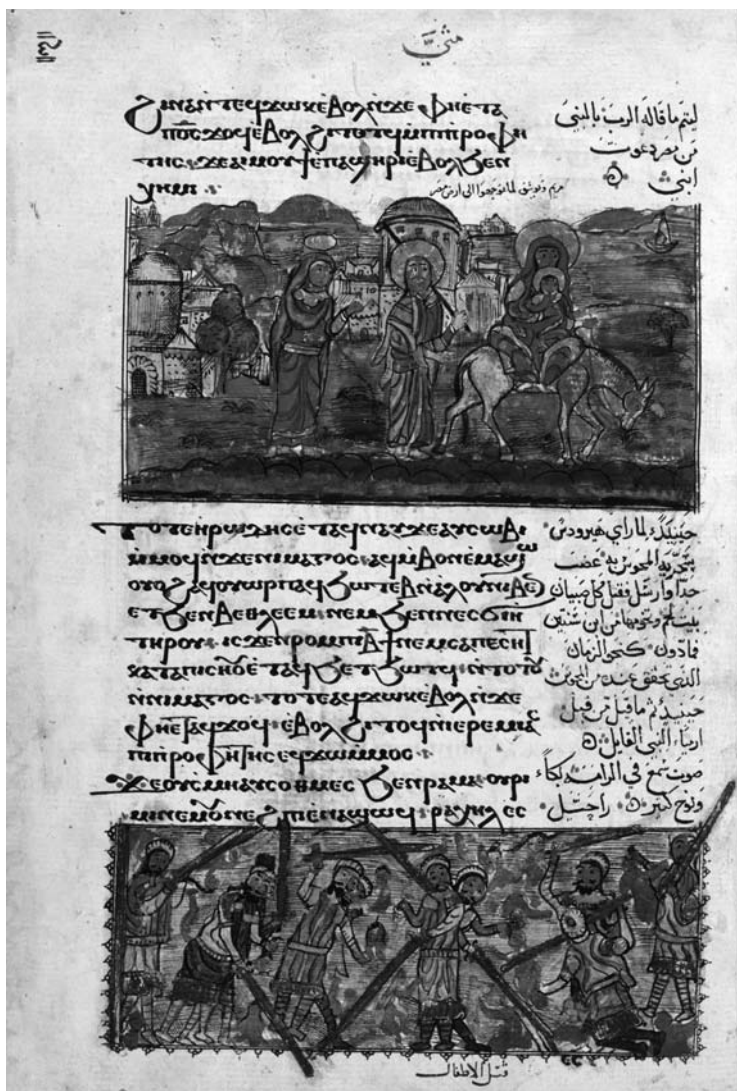 متي
ϩⲓⲛⲁ ⲛⲧⲉϥϫⲱⲕ ⲉⲃⲟⲗ ⲛϫⲉ ⲫⲏⲉⲧⲁ
ⲡⲟ̅ⲥ̅ ϫⲟϥ ⲉⲃⲟⲗ ϩⲓⲧⲟⲧϥ ⲙⲡⲓⲡⲣⲟⲫⲏ
ⲧⲏⲥ ϫⲉ ⲁⲓⲙⲟⲩϯ ⲉⲡⲁϣⲏⲣⲓ ⲉⲃⲟⲗ ϧⲉⲛ
ⲭⲏⲙⲓ
ليتم ما قاله الرب بالنبي
من مصر دعوت
ابني
لما توجهوا الى ارض مصر
ⲧⲟⲧⲉ ⲏⲣⲱⲇⲏⲥ ⲉⲧⲁϥⲛⲁⲩ ϫⲉ ⲁⲩⲥⲱⲃⲓ
ⲙⲙⲟϥ ⲛϫⲉ ⲛⲓⲙⲁⲅⲟⲥ ⲁϥⲙⲃⲟⲛ ⲉⲙⲁϣⲱ
ⲟⲩⲟϩ ⲁϥⲟⲩⲱⲣⲡ ⲁϥϧⲱⲧⲉⲃ ⲛⲁⲗⲟⲩ ⲛⲓⲃⲉⲛ
ⲉⲧϧⲉⲛ ⲃⲉⲑⲗⲉⲉⲙ ⲛⲉⲙ ϧⲉⲛ ⲛⲉⲥϭⲓⲏ
ⲧⲏⲣⲟⲩ ⲓⲥϫⲉⲛ ⲣⲟⲙⲡⲓ ⲃ̅ϯ ⲛⲉⲙ ⲥⲁⲡⲉⲥⲏⲧ
ⲕⲁⲧⲁ ⲡⲓⲥⲏⲟⲩ ⲉⲧⲁϥϧⲉⲧϧⲱⲧϥ ⲛⲧⲟⲧⲟⲩ
ⲛⲛⲓⲙⲁⲅⲟⲥ ⲧⲟⲧⲉ ⲁϥϫⲱⲕ ⲉⲃⲟⲗ ⲛϫⲉ
ⲫⲏⲉⲧⲁϥϫⲟϥ ⲉⲃⲟⲗ ϩⲓⲧⲟⲧϥ ⲛⲓⲉⲣⲉⲙⲓⲁⲥ
ⲡⲓⲡⲣⲟⲫⲏⲧⲏⲥ ⲉϥϫⲱ ⲙⲙⲟⲥ
ϫⲉ ⲟⲩⲥⲙⲏ ⲁⲩⲥⲟⲑⲙⲉⲥ ϧⲉⲛ ⲣⲁⲙⲁ ⲟⲩⲣⲓ
ⲙⲓ ⲛⲉⲙ ⲟⲩⲛⲉϩⲡⲓ ⲉⲛⲁϣⲱϥ ⲣⲁⲭⲏⲗ ⲉⲥ
حينيذ لما راي هيرودس
المجوس به غضب
جدا وارسل فقتل كل صبيان
بيت لحم وتخومها من ابن سنتين
فما دون كنحو الزمان
الذي تحقق عنده من المجوس
حينيذ تم ما قيل من قبل
ارميا النبي القايل
صوت سمع في الرامه بكاء
ونوح كثير راحيل
قتل الاطفال